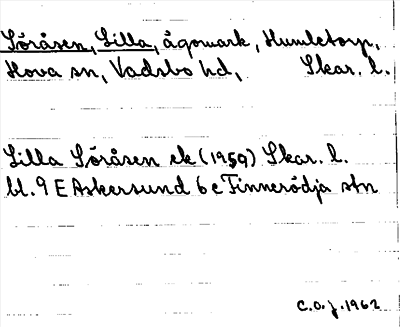 Söråsen, Lilla, ägomark, Humletorp,
Hova sn, Vadsbo hd, Skar. l.
Lilla Söråsen ek (1959) Skar. l.
bl. 9 E Askersund 6 c Finnerödja stn
C.O.J. 1962